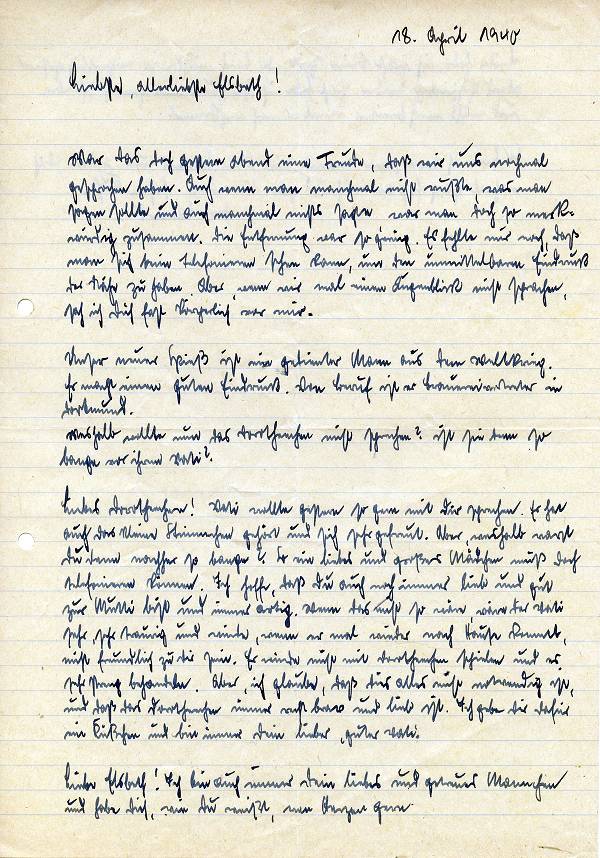 18. April 1940
Liebste, allerliebste Elsbeth!
War das doch gestern abend eine Freude, daß wir uns nochmal
gesprochen haben. Auch wenn man manchmal nicht wußte, was man
sagen sollte und auch manchmal nichts sagte war man doch so merk-
würdig zusammen. Die Entfernung war so gering. Es fehlte nur noch, daß
man sich beim telefonieren sehen kann, um den unmittelbaren Eindruck
der Nähe zu haben. Aber, wenn wir mal einen Augenblick nicht sprachen,
sah ich Dich fast körperlich vor mir.
Unser neuer Spieß ist ein gedienter Mann aus dem Weltkrieg.
Er macht einen guten Eindruck. Von Beruf ist er Brauereivertreter in
Dortmund.
Weshalb wollte nun das Dorothechen nicht sprechen? Ist sie denn so
bange vor ihrem Vati?
Liebes Dorothechen! Vati wollte gestern so gern mit Dir sprechen. Er hat
auch das kleine Stimmchen gehört und sich sehr gefreut. Aber, weshalb warst
Du denn nachher so bange? So ein liebes und großes Mädchen muß doch
telefonieren können. Ich hoffe, daß Du auch noch immer lieb und gut
zur Mutti bist und immer artig. Wenn das nicht so wäre, wäre der Vati
sehr, sehr traurig und würde, wenn er mal wieder nach Hause kommt,
nicht freundlich zu dir sein. Er würde nicht mit Dorothechen spielen und es
sehr streng behandeln. Aber, ich glaube, daß dies alles nicht notwendig ist,
und daß das Dorothechen immer recht brav und lieb ist. Ich gebe dir dafür
ein Küßchen und bin immer dein lieber, guter Vati.
Liebe Elsbeth! Ich bin auch immer dein liebes und getreues Mannchen
und habe dich, wie Du weißt, von Herzen gern.